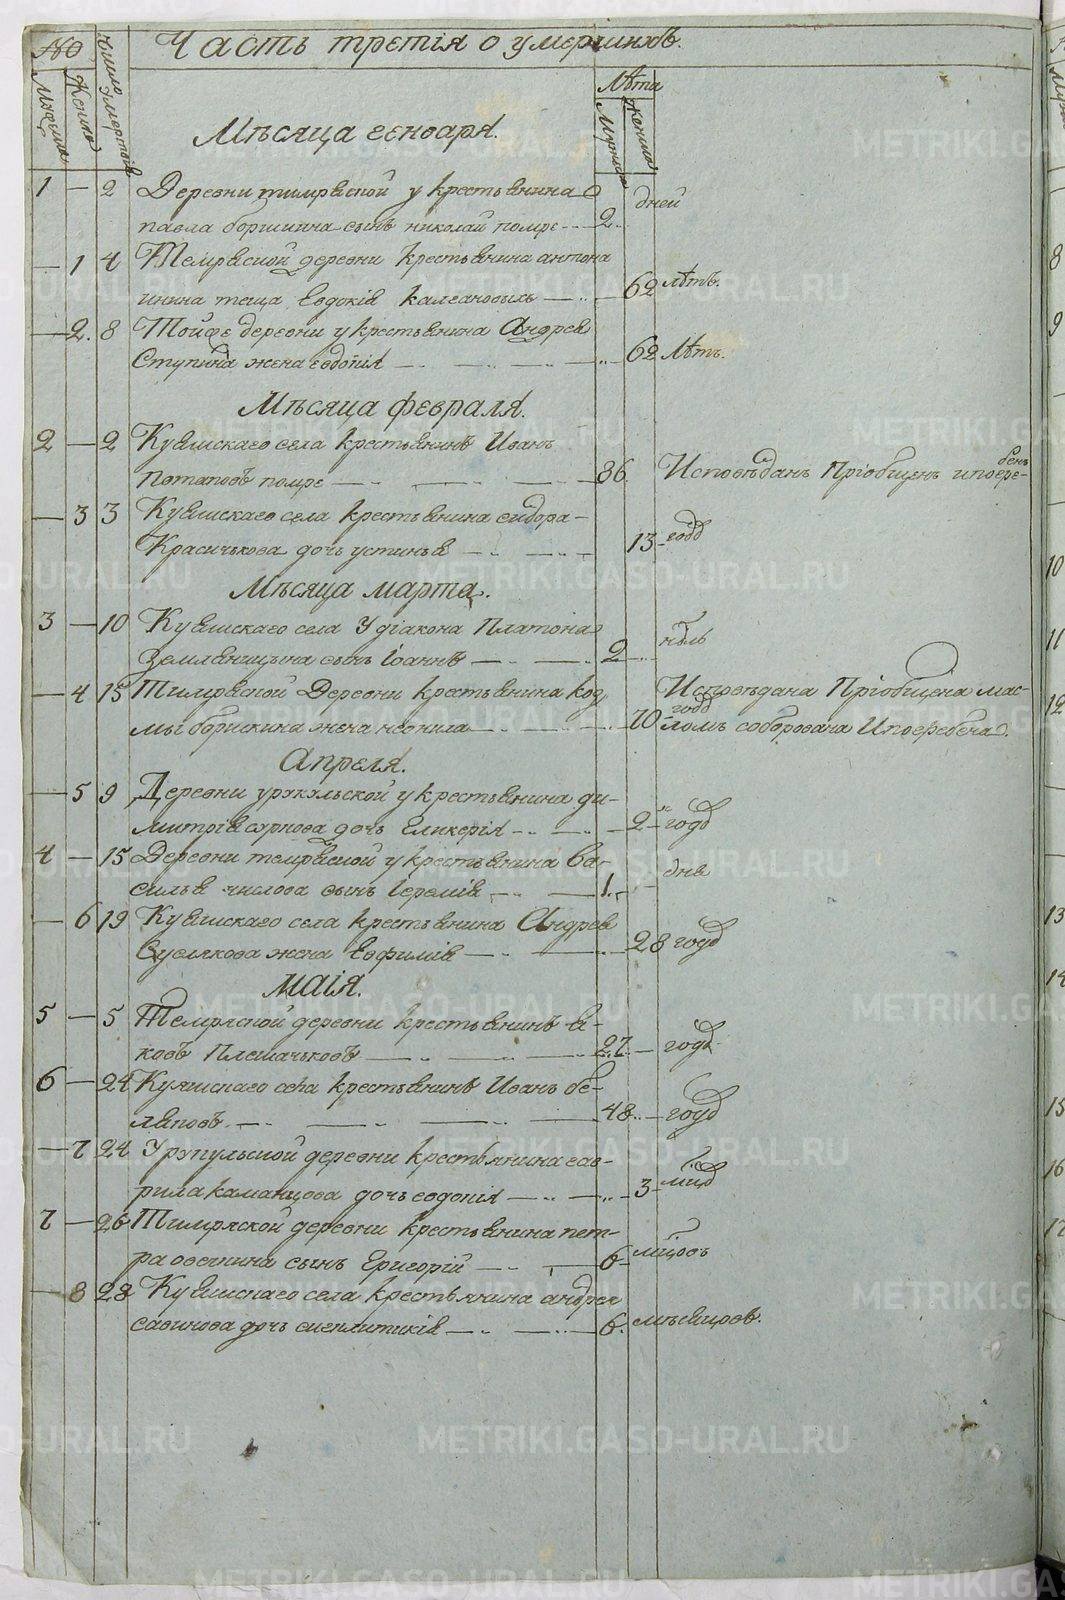 № Число умертвія Часть третія о умершихъ.
Мужеска Женска Лѣта
Мужеска Женска
Мѣсяца генваря.
1 — 2 Деревни тимряской у крестьянина
павла боршнина сынъ николай помре — 2 дней
— 1 4 Темряской деревни крестьянина антона
инина теща Евдокія — 62 лѣтъ.
— 2. 8 Тойже деревни у крестьянина Андрея
Ступина жена евдокія — 62 лѣтъ.
Мѣсяца февраля.
2 — 2 Куяшскаго села крестьянинъ Иванъ
Потаповъ помре — 86. Исповѣданъ Пріобщенъ ипогребенъ
— 3 3 Куяшскаго села крестьянина сидора
дочь устинья — 13 годъ
Мѣсяца марта.
3 — 10 Куяшскаго села У діакона Платона
Земляницына сынъ Іоаннъ — 2 нѣль
— 4 15 Тимряской Деревни крестьянина коз
мы жена — 70 годъ Исповѣдана Пріобщена мас-
ломъ соборована Ипогребена.
Апреля.
— 5 9 Деревни урукульской у крестьянина ди-
митрія дочь Гликерія — 2 годъ
4 — 15 Деревни темряской у крестьянина Ва-
силья числова сынъ Іеремія — 1 дня
— 6 19 Куяшскаго села крестьянина Андрея
Суслякова жена Евфимія — 28 годъ
Маія.
5 — 5 Темряской деревни крестьянинъ я-
ковъ — 27. — годъ
6 — 24 Куяшскаго села крестьянинъ Иванъ бе-
ляновъ. — 48 — годъ
— 7 24 Урукульской деревни крестьянина гав-
рила каманцова дочь евдокія — 3 — мцъ
7 — 26 Тимряской деревни крестьянина пет-
ра овечкина сынъ Григорій — 6 — мцовъ
— 8 28 Куяшскаго села крестьянина андрея
савинова дочь — 6. мѣсяцовъ.
METRIKI.GASO-URAL.RU